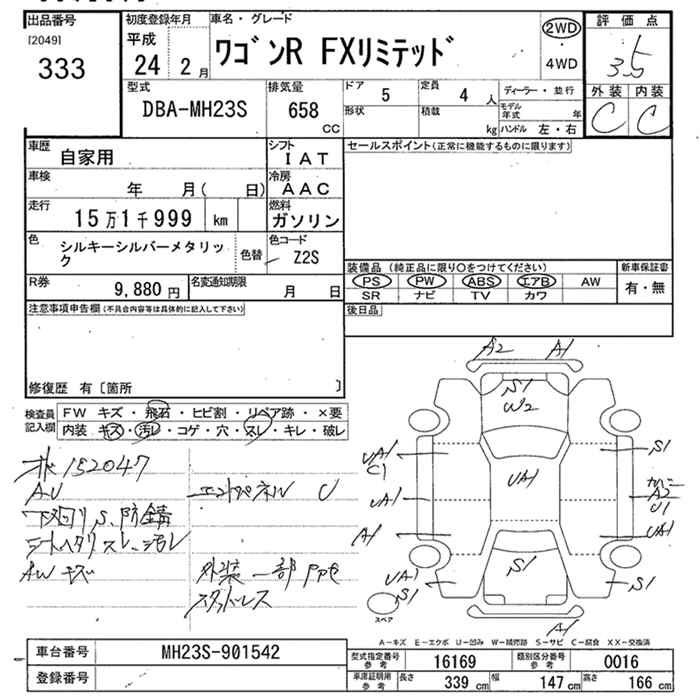 出品番号
[2049]
333
初度登録年月
平成
24 2 月
車名・グレード
ワゴンR FXリミテッド
2WD
・
4WD
評価点
3.5
外装 内装
C C
型式
DBA-MH23S
排気量
658
CC
ドア 5
定員 4 人
形状
積載 kg
ディーラー・並行
モデル年式 年
ハンドル 左・右
車歴
自家用
シフト
IAT
車検
年 月( 日)
冷房
AAC
走行
15万1千999 km
燃料
ガソリン
色
シルキーシルバーメタリック
色替
色コード
Z2S
R券
9,880 円
名変通知期限
月 日
セールスポイント(正常に機能するものに限ります)
装備品 (純正品に限り○をつけてください)
PS PW ABS エアB AW
SR ナビ TV カワ
新車保証書
有・無
後日品
注意事項申告欄(不具合内容等は具体的に記入して下さい)
修復歴 有〔箇所 〕
検査員記入欄
FW キズ・飛石・ヒビ割・リペア跡・×要
内装 キズ・汚レ・コゲ・穴・スレ・キレ・破レ
152047
AU
エンドパネル U
下回りS、防錆
シートヘタリ スレ、汚レ
AW キズ
外装一部
スタッドレス
A2 A1
S1
W2
UA1
C1
S1
UA1
UA1
カナニ
A2
U1
A1
UA1
UA1
S1
S1
S1
A1
スペア
A-キズ E-エクボ U-凹み W-補修跡 S-サビ C-腐食 XX-交換済
車台番号
MH23S-901542
登録番号
型式指定番号 参考 16169
類別区分番号 参考 0016
車庫証明用 参考
長さ 339 cm
幅 147 cm
高さ 166 cm